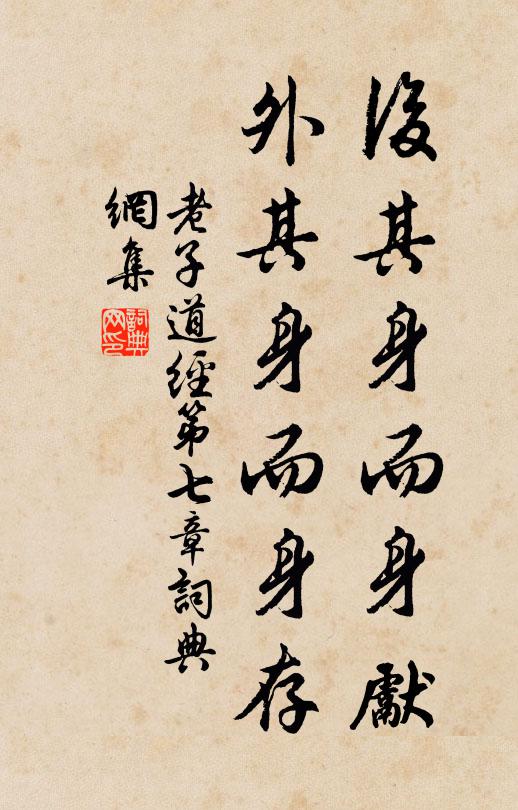 後其身而身獻
外其身而身存
老子道經第七章詞典
網集
詞典网印